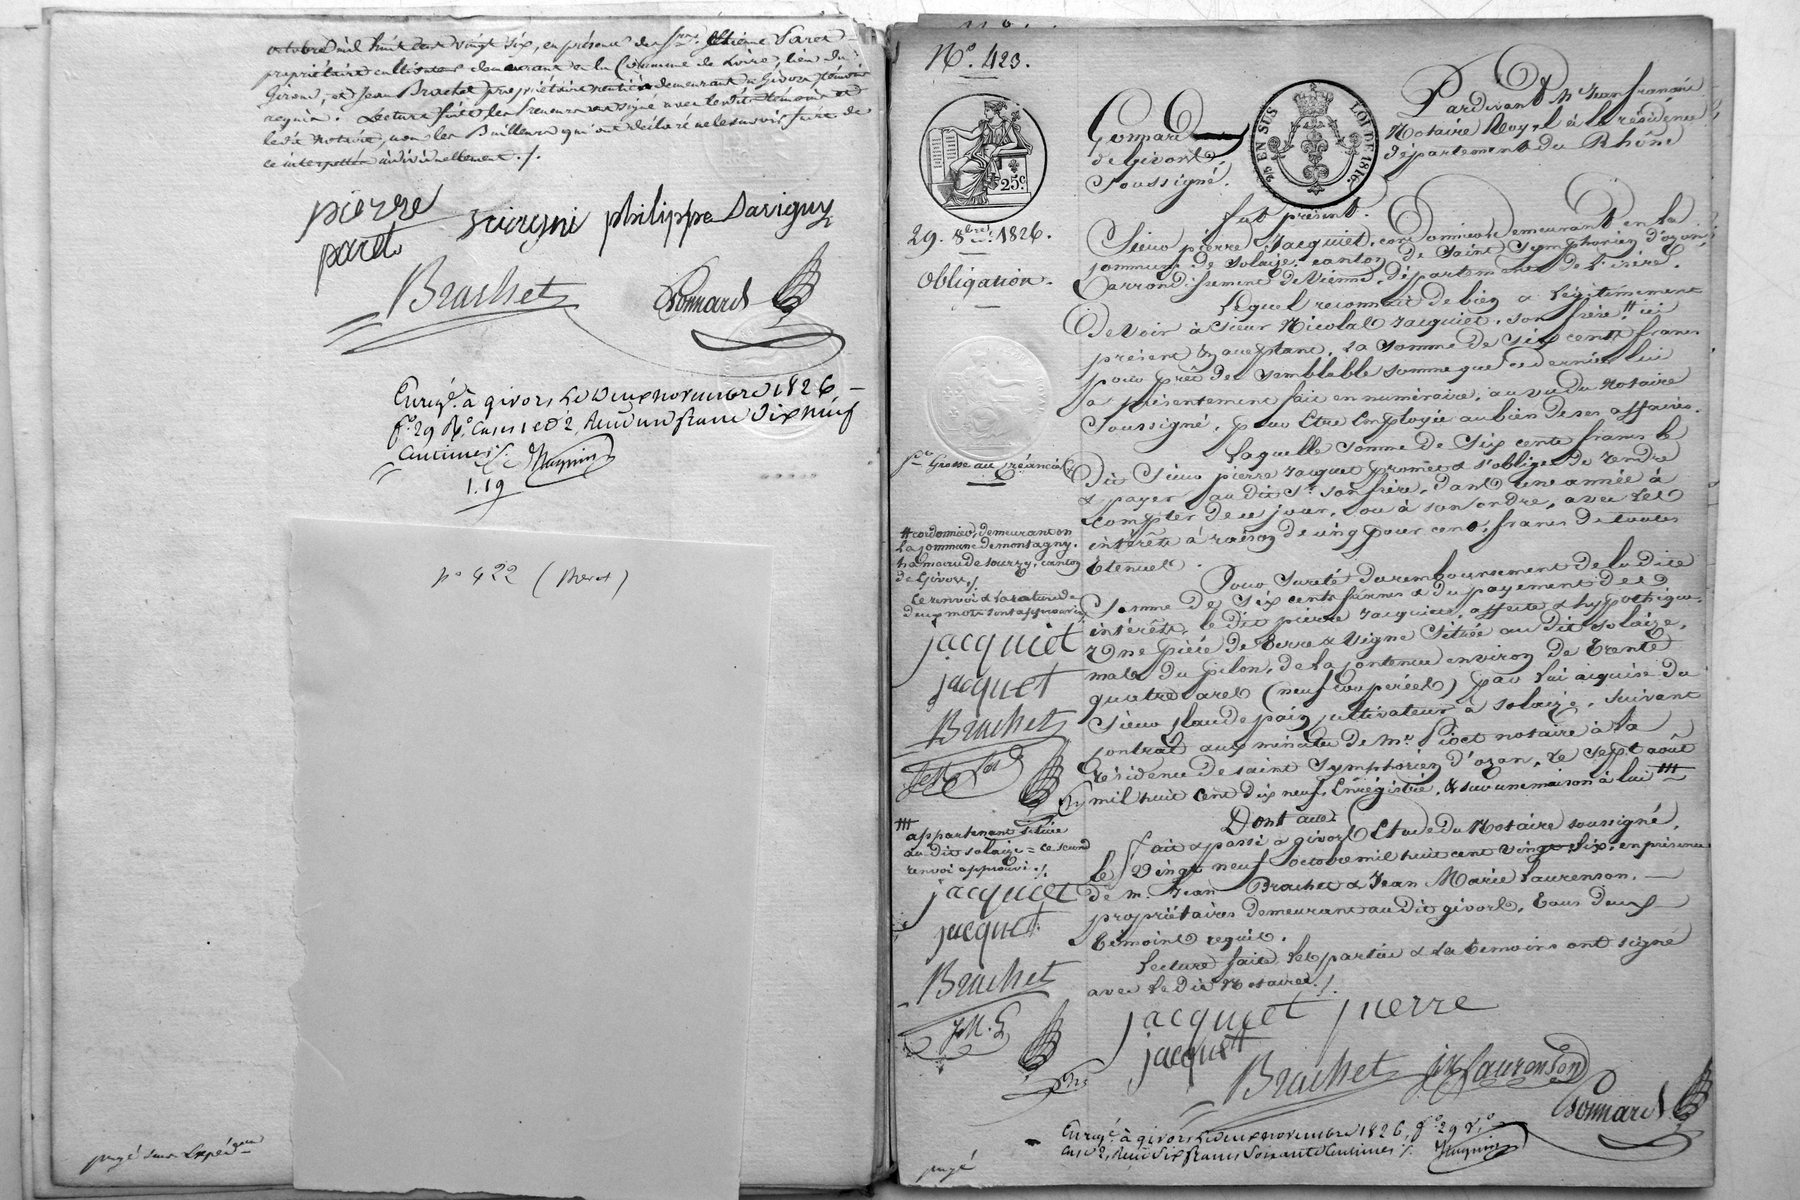 octobre mil huit cent vingt six, en présence des Srs. Etienne Paret
propriétaire cultivateur demeurant en la Commune de Loire, lieu du
Giroud, et Jean Brachet propriétaire rentier demeurant à Givors témoins
requis. Lecture faite les Preneurs ont signé avec les dits témoins et
le dit notaire, non les Bailleurs qui ont déclaré ne le savoir faire de
ce interpellés individuellement ./.
pierre
paret
philippe Savigny
Brachet
Bonnard
Enregé. à givors le deux novembre 1826
fo. 29 Ro. Cases 1 et 2, Reçu un franc dix neuf
centimes ./.
1.19
no 422 (Brevet)
payé sur l'expédon
No. 423.
25c.
25 EN SUS
LOI DE 1816.
29. 8bre. 1826.
Obligation.
Pardevant Me Jean françois
Compare
Notaire Royal à la résidence
de Givors,
département du Rhône
Soussigné.
fut présent.
Sieur pierre Jacquiet, cordonnier demeurant en la
commune de Solaize, canton de Saint Symphorien d'ozon,
arrondissement de Vienne, département de l'isère.
Lequel reconnait debien & légitimement
Devoir à Sieur Nicolas Jacquiet, son frère, # ici
présent & acceptant, la somme de Six cents francs
pour prêt de Semblable somme que ce dernier lui
a présentement fait en numéraire, au vu du Notaire
Soussigné, pour être Employée au bien de ses affaires.
Laquelle somme de Six cents francs le
Dit Sieur pierre Jacquet promet & s'oblige de rendre
& payer au dit Sr. son frère, dans une année à
compter de ce jour, ou à son ordre, avec les
intérêts à raison de cinq pour cent, francs de toutes
retenues.
Pour Sureté du remboursement de la dite
Somme de Six cents francs & du payement des
intérêts, le dit pierre Jacquiet, affecte & hypothèque,
Une pièce de terre & Vigne Située au dit Solaize,
mas du pilon, de la contenue environ de trente
quatre ares (neuf couperées) par lui acquise du
Sieur Claude pain cultivateur à Solaize, Suivant
contrat aux minutes de Me. Piot notaire à la
résidence de Saint Symphorien d'ozon, le Sept août
mil huit cent dix neuf, Enrégistré, & sur une maison à lui
Dont acte,
fait & passé à givors Etude du Notaire soussigné,
le Vingt neuf octobre mil huit cent vingt Six, en présence
de m. Jean Brachet & Jean Marie Laurenson,
propriétaires demeurant au dit givors, tous deux
témoins requis.
Lecture faite, les parties & les témoins ont signé
avec le Dit Notaire ./.
jacquiet pierre
jacquet
Brachet jm Laurenson
Bonnard
Enregé. à givors le deux novembre 1826, fo. 29 Vo.
Case 2, Reçu Six francs Soixante Centimes ./.
payé
fte Grosse au Créancier
# cordonnier, demeurant en
la commune de montagny,
hameau de Sourzy, canton
de Givors ./.
Le renvoi & la rature de
deux mots sont approuvés
jacquiet
jacquet
Brachet
appartenant Située
au dit Solaize = ce second
renvoi approuvé ./.
jacquiet
jacquet
Brachet
J.M. L